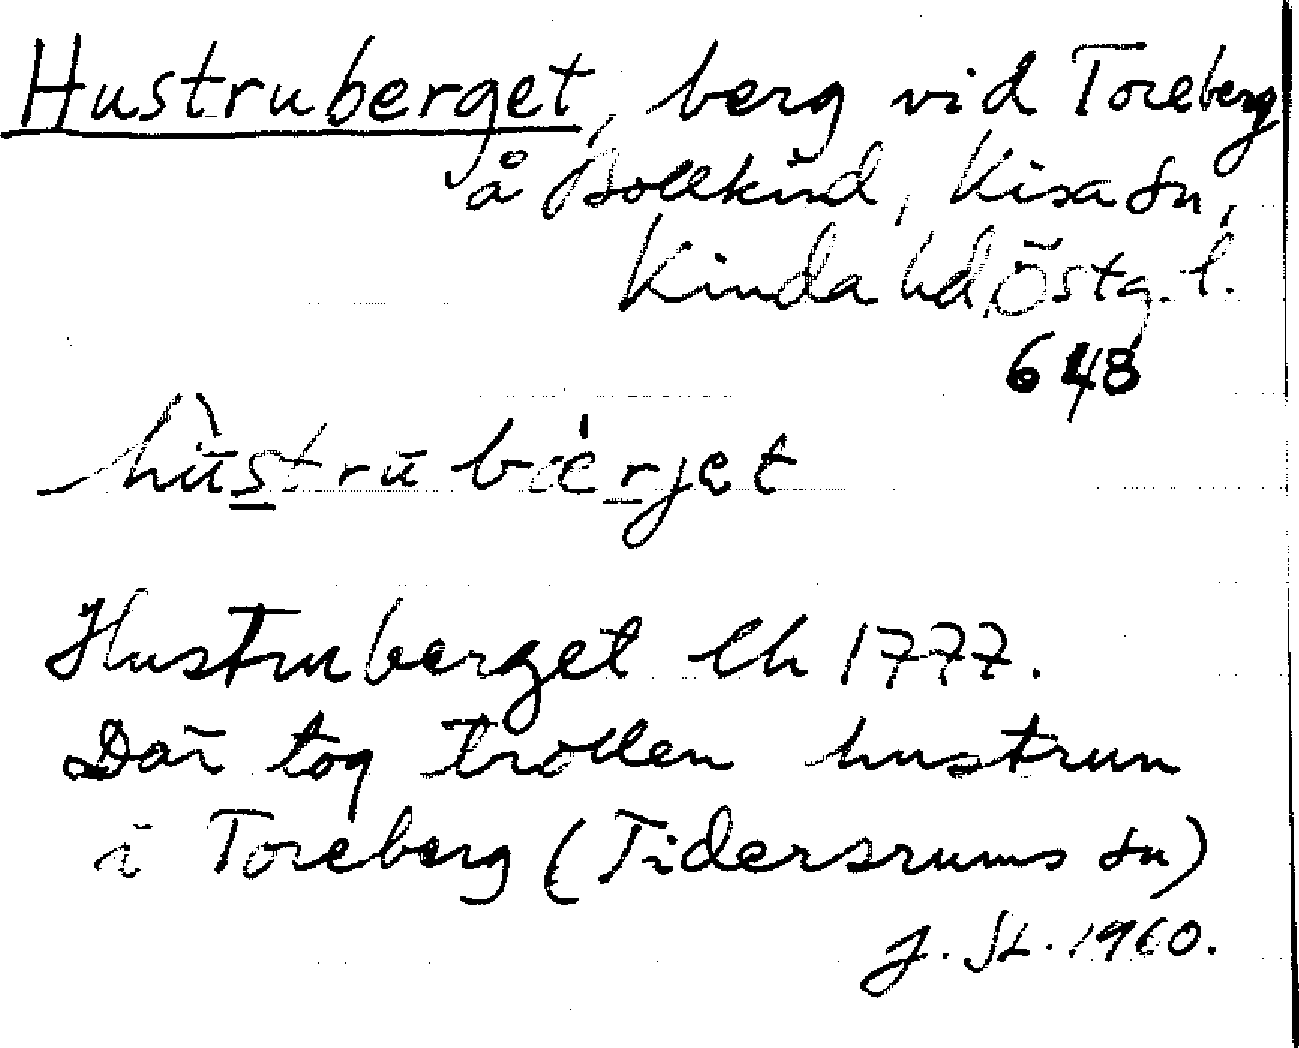 Hustruberget, berg vid Toreberg
å Bollkind, Kisa sn,
Kinda hd, Östg. l.
648
hùstrubǽrjet
Hustruberget Lh 1777.
Där tog trollen hustrun
i Toreberg (Tidersrums sn)
J. St. 1960.